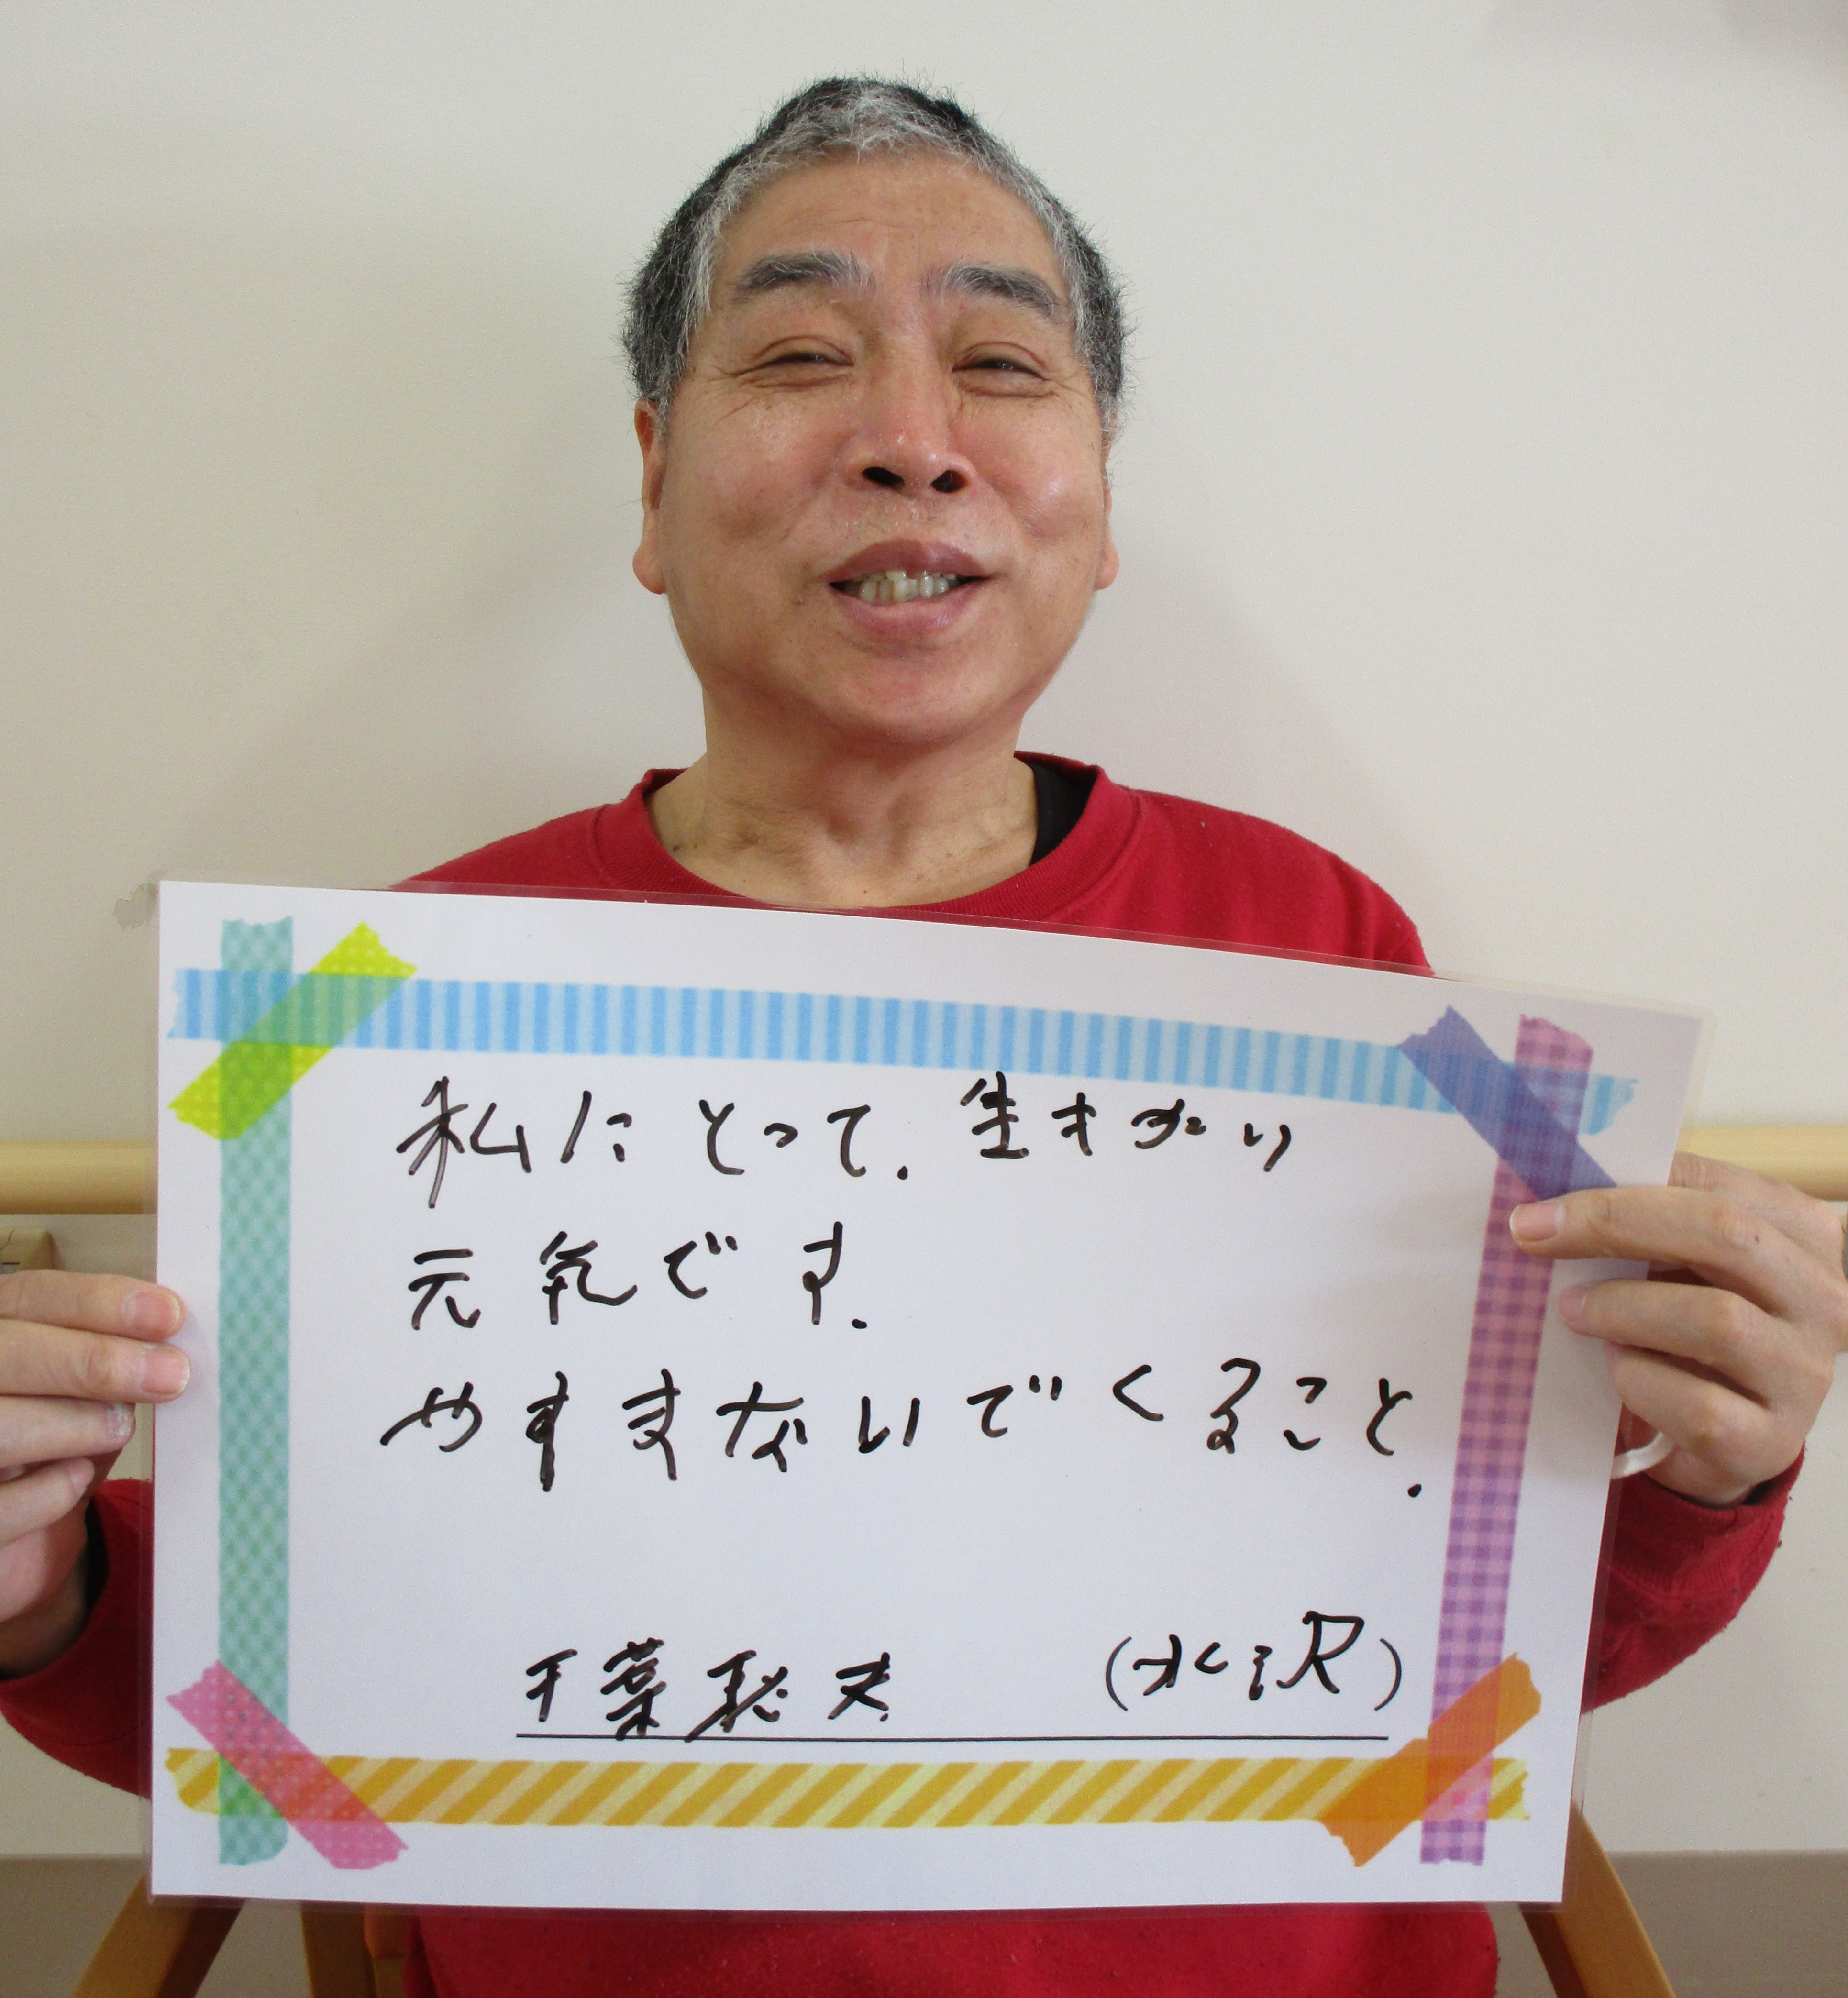 私にとって.生きがい
元気です.
やすまないでくること.
千葉聡夫 (水沢)